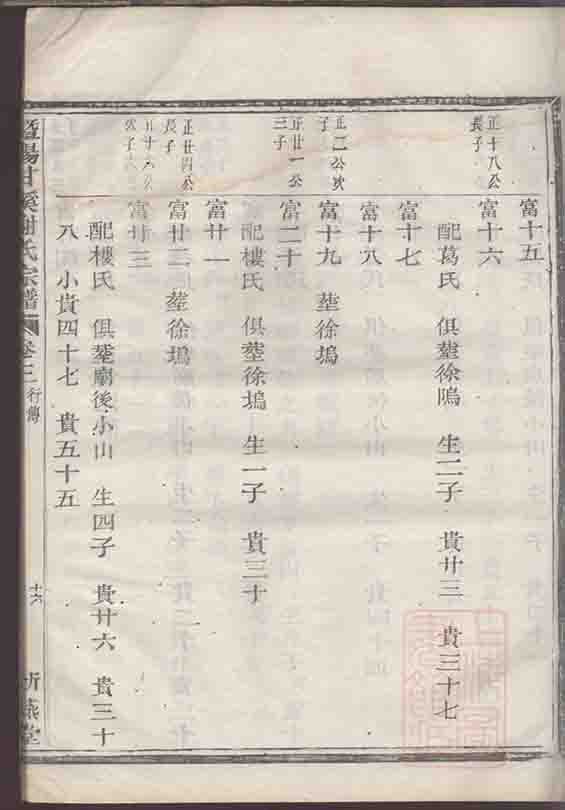 富十五
正十八公長子
富十六
配葛氏 俱塟徐隖 生二子 貴廿三 貴三十七
富十七
富十八
正二公次子
富十九 塟徐塢
正廿一公三子
富二十
配樓氏 俱塟徐塢 生一子 貴三十
富廿一
正廿四公長子
富廿二 塟徐塢
富廿三
配樓氏 俱塟廟後小山 生四子 貴廿六 貴三十
八 小貴四十七 貴五十五
暨陽甘溪謝氏宗譜 卷三 行傳 十六